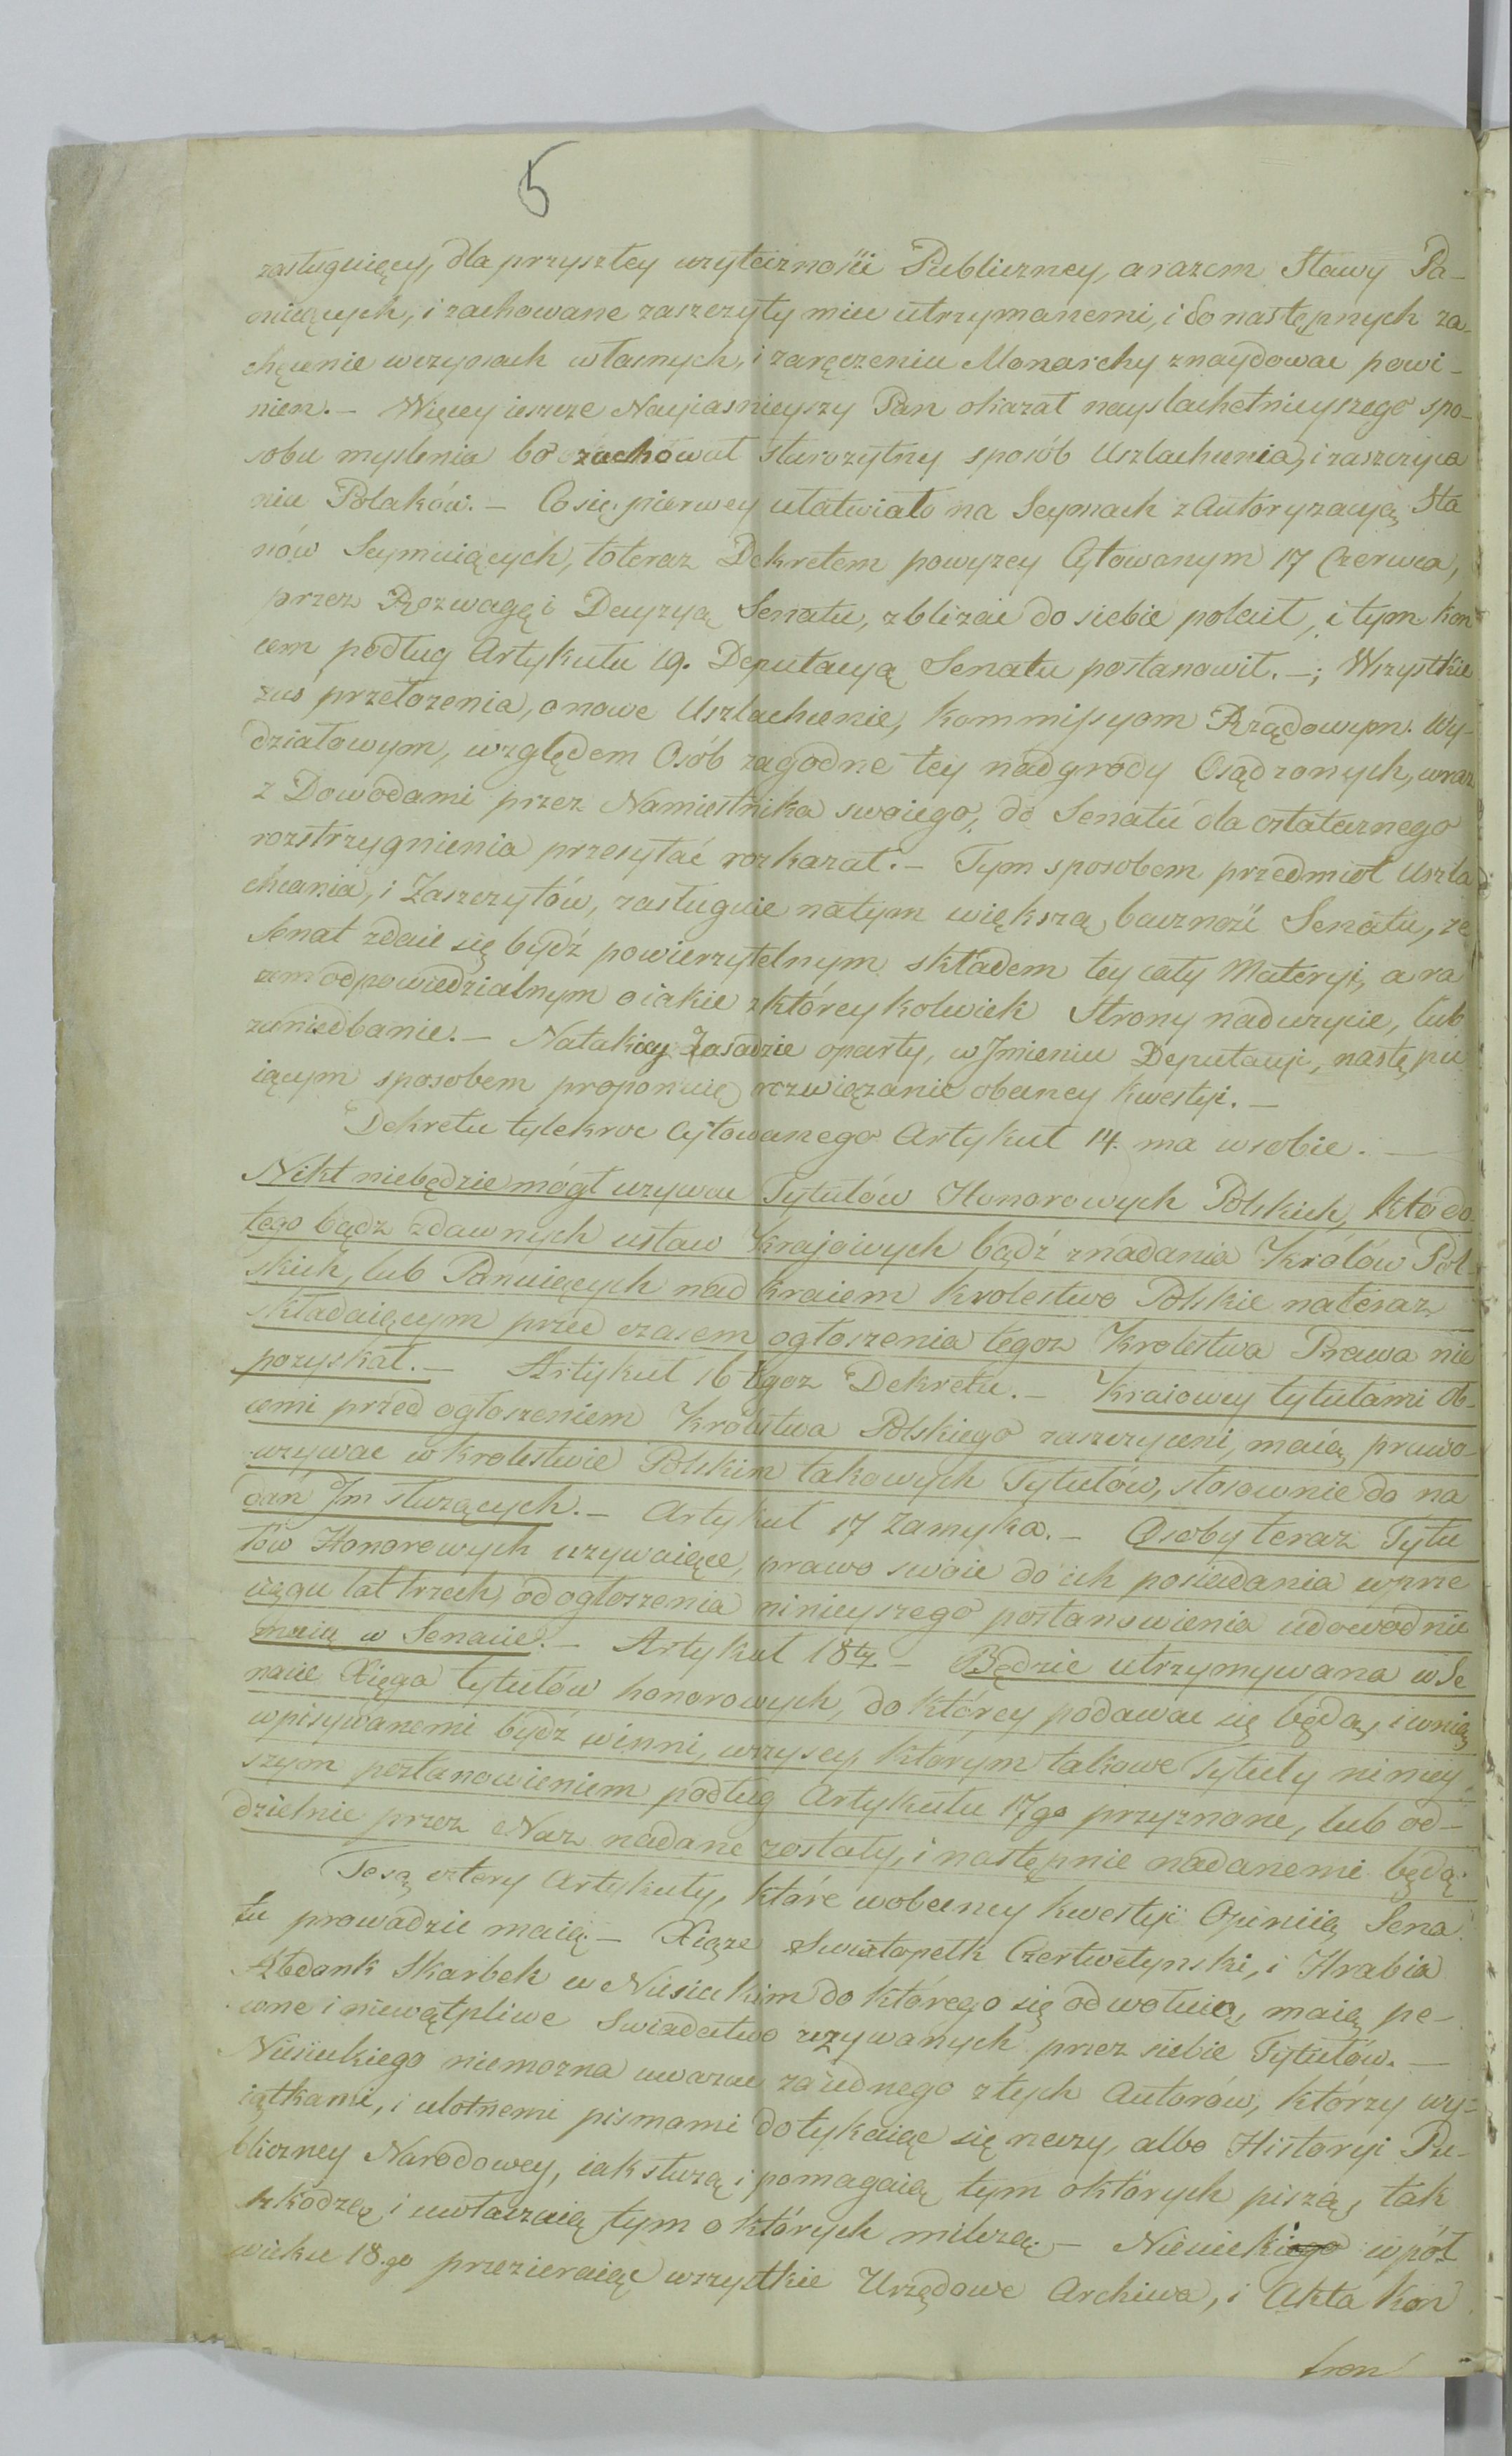 5
zasługuiący, dla przyszłey użyteczności Publiczney, a razem Sławy Pa-
nuiących, i zachowane zaszczyty miec utrzymanemi, i do następnych za-
chęcenie w czynach własnych, i zaręczeniu Monarchy znaydowac powi-
nien. – Więcey ieszcze Nayiasnieyszy Pan okazał nayslachetnieyszego spo-
sobu myslenia bo zachował starozytny sposób Uszlachcenia, i zaszczyca
niu Polaków. – Co się pierwey ułatwiało na Seymach z Autoryzacyą Sta
nów Seymuiących, to teraz Dekretem powyzey Cytowanym 17 Czerwca,
przez Rozwagę i Decyzyą Senatu, zblizać do siebie polecił, i tym koń
cem podług Artykułu 19. Deputacyą Senatu postanowił. –; Wszystkie
zaś przełozenia, o nowe Uszlachcenie, Kommissyom Rządowym. Wy-
działowym, względem Osób zagodne tey nadgrody Osądzonych, wraz
z Dowodami przez Namiestnika swoiego, do Senatu dla ostatecznego
rozstrzygnienia przesyłać rozkazał. – Tym sposobem przedmiot Uszla
chcania, i Zaszczytów, zasługuie na tym większą baczność Senatu, ze
Senat zdaie się bydź powierzytelnym składem tey cały Materyi, a ra
zem odpowiedzialnym o iakie z któreykolwiek Strony naduzycie, lub
zaniedbanie. – Na takiey Zasadzie oparty, w Jmieniu Deputacyi, następu
iącym sposobem proponuię rozwiązanie obecney kwestyi. –
Dekretu tylekroc Cytowanego Artykuł 14. ma w sobie. –
Nikt niebędzie mógł uzywac Tytułów Honorowych Polskich, kto do
tego bądz zdawnych ustaw Krajowych bądź z nadania Królów Pol
skich, lub Panuiących nad kraiem Krolestwo Polskie nateraz
składaiącym przed czasem ogłoszenia tegoz Krolestwa Prawa nie
pozyskał. – Artykuł 16 tegoz Dekretu. – Kraiowcy tytułami ob-
cemi przed ogłoszeniem Krolestwa Polskiego zaszczyceni, maią prawo
uzywac w krolestwie Polskim takowych Tytułów, stosownie do na
dań Jm słuzących. – Artykuł 17 Zamyka. – Osoby teraz Tytu
łów Honorowych uzywaiące, prawo swoie do ich posiadania w prze
ciągu lat trzech od ogłoszenia ninieyszego postanowienia udowodnić
maią w Senacie. – Artykuł 18ty – Będzie utrzymywana w Se
nacie Xięga tytułów honorowych, do którey podawac się będą, i w nią
wpisywanemi bydź winni, wszyscy, którym takowe Tytuły niniey
szym postanowieniem podług Artykułu 17go przyznane, lub od-
dzielnie przez Nas nadane zostały, i następnie nadanemi będą.
Te są cztery Artykuły, które w obecney kwestyi Opiniią Sena
tu prowadzic maią. – Xiąze Swiatopełk Czertwetynski, i Hrabia
Abdank Skarbek w Niesieckim do którego się odwołuią, maią pe-
wne i niewątpliwe Swiadectwo uzywanych przez siebie Tytułów. –
Niesieckiego niemozna uwazac za iednego z tych Autorów, którzy wy-
iątkami, i ulotnemi pismami dotykaiąc się rzeczy, albo Historyi Pu-
bliczney Narodowey, iak słuzą i pomagaią tym o których piszą, tak
szkodzą i uwłaczaią tym o których milczą. – Niesiecki w pół
wieku 18.go przezieraiąc wszystkie Urzędowe Archiwa, i Akta Kon